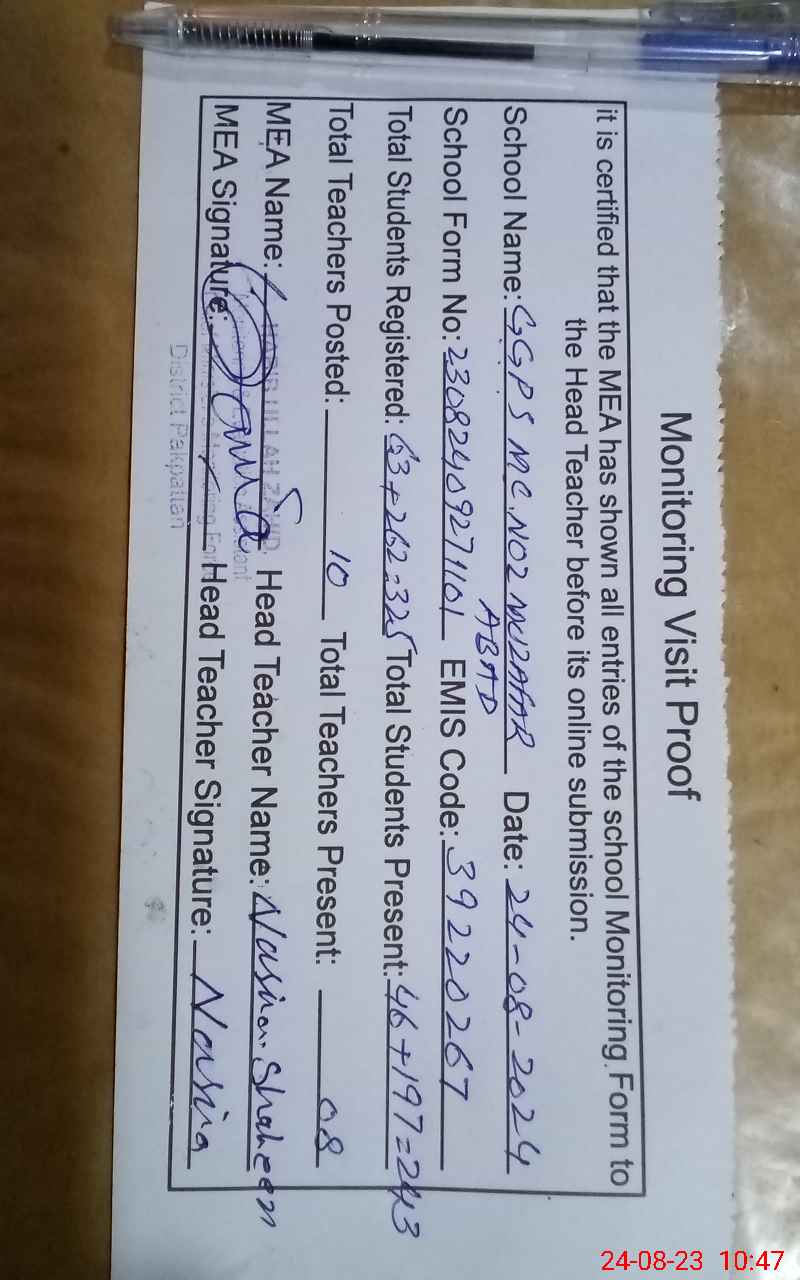 Monitoring Visit Proof
it is certified that the MEA has shown all entries of the school Monitoring Form to
the Head Teacher before its online submission.
School Name: GGPS MC. NO2 MUZAFAR Date: 24-08-2024
ABAD
School Form No: 23082409271101 EMIS Code: 39220267
Total Students Registered: 63+262=325 Total Students Present: 46+197=243
Total Teachers Posted: 10 Total Teachers Present: 08
MEA Name: Head Teacher Name: Nasira Shaheen
MEA Signature: Head Teacher Signature: Nasira
District Pakpattan
24-08-23 10:47